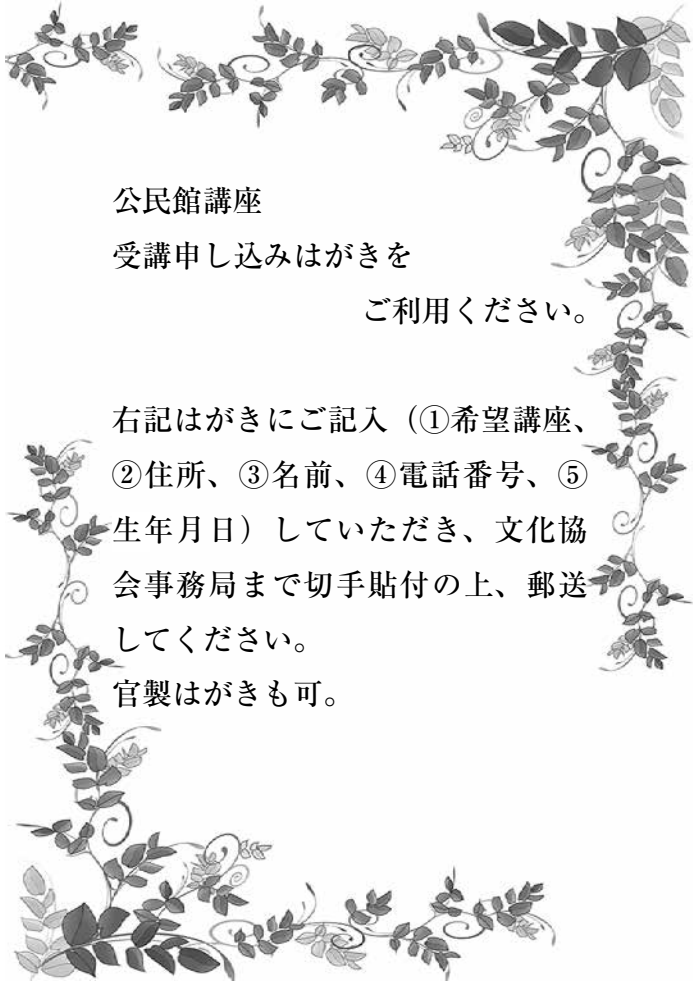 公民館講座
受講申し込みはがきを
ご利用ください。
右記はがきにご記入（①希望講座、
②住所、③名前、④電話番号、⑤
生年月日）していただき、文化協
会事務局まで切手貼付の上、郵送
してください。
官製はがきも可。